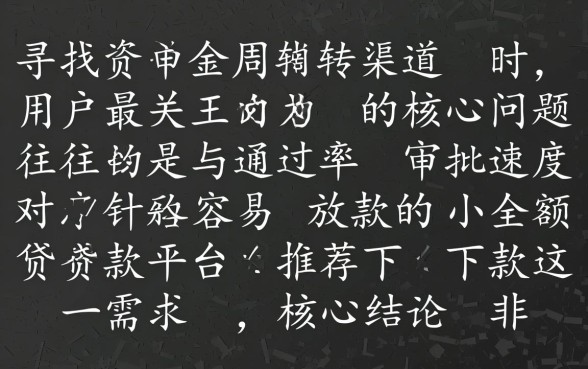 寻找资金周转渠道 时，
用户最关 的核心问题
往往 是与通过率 审批速度
对 针 容易 放款的 小全额
贷 款平台 推荐下 下款这
一需求 ，核心结论 非